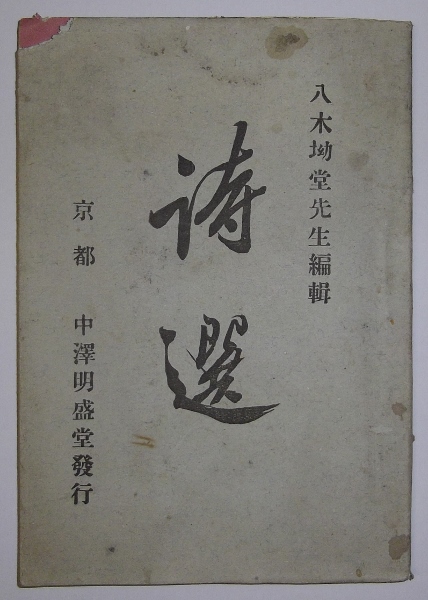 八木坳堂先生編輯
詩選
京都 中澤明盛堂發行